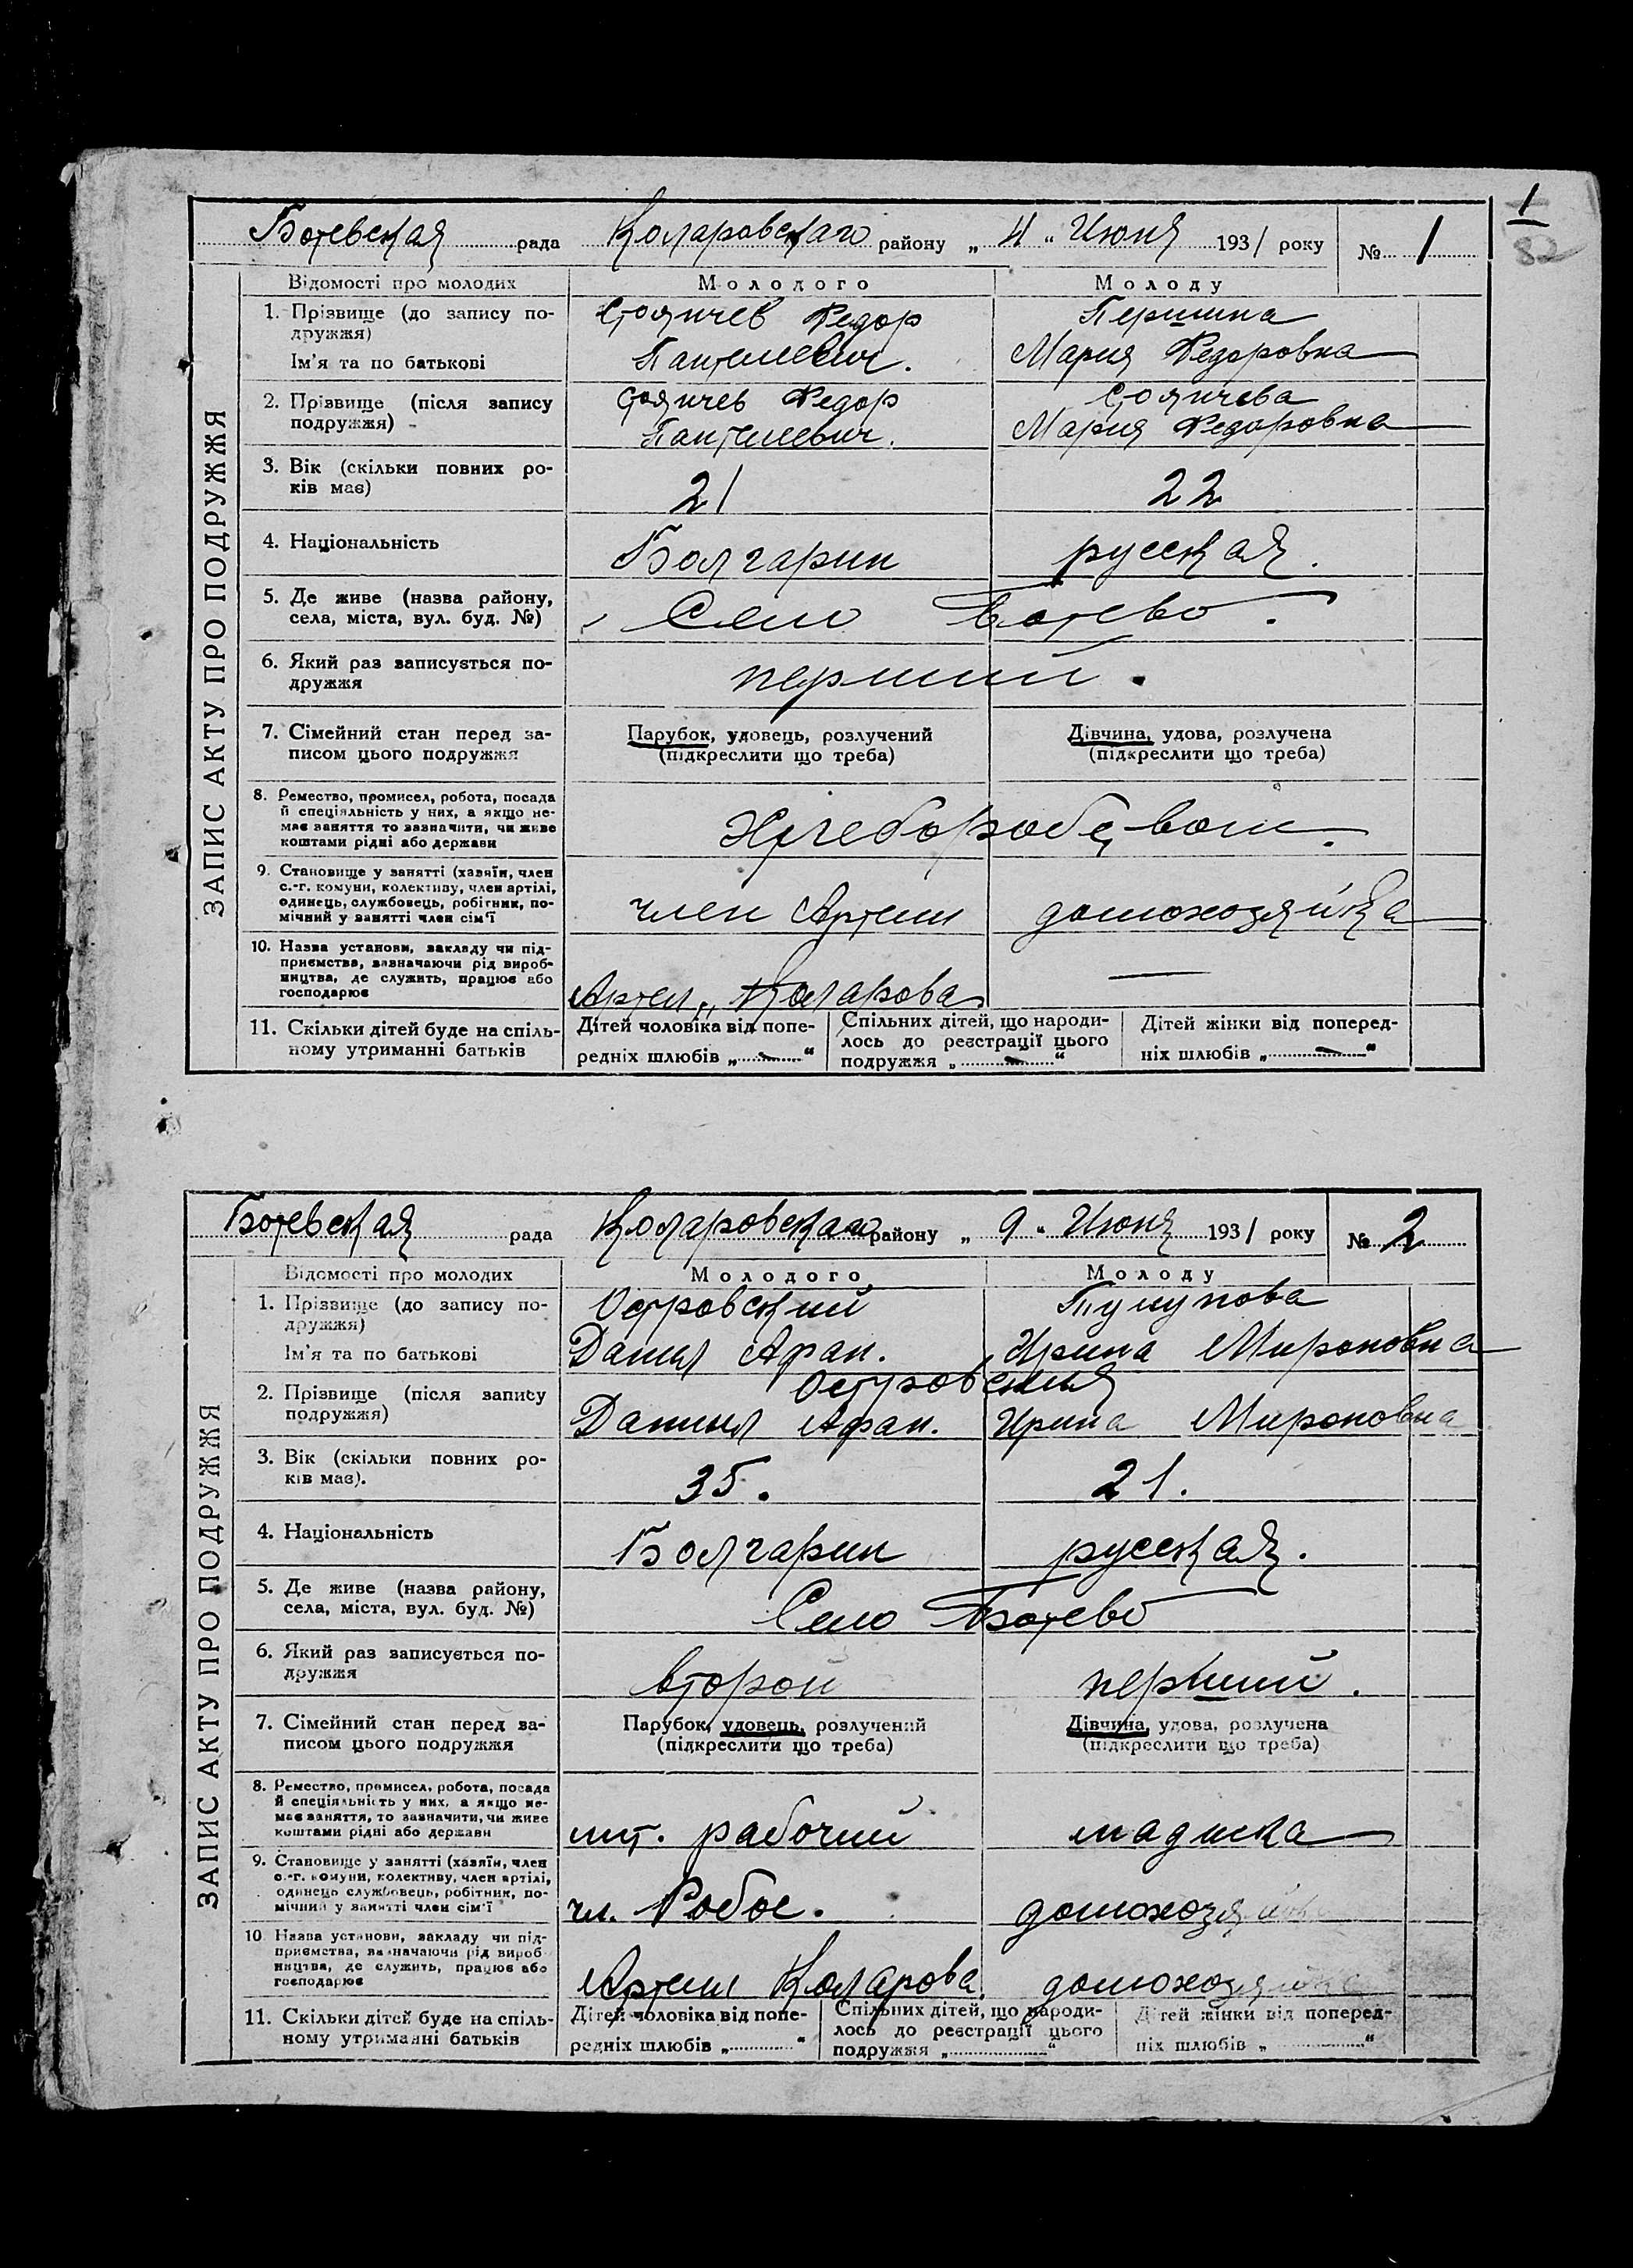 1
82
Ботевская рада Коларовскаго району „ 4 “ Июня 1931 року № 1
ЗАПИС АКТУ ПРО ПОДРУЖЖЯ
Відомості про молодих Молодого Молоду
1. Прізвище (до запису по- Стоянчев Федор Першина
дружжя)
Ім'я та по батькові Пантелевич. Мария Федоровна
2. Прізвище (після запису Стоянчев Федор Стоянчева
подружжя) Пантелевич. Мария Федоровна
3. Вік (скільки повних ро-
ків має) 21 22
4. Національність Болгарин русская.
5. Де живе (назва району,
села, міста, вул. буд. №) Село Ботево.
6. Який раз записується по-
дружжя перший.
7. Сімейний стан перед за- Парубок, удовець, розлучений Дівчина, удова, розлучена
писом цього подружжя (підкреслити що треба) (підкреслити що треба)
8. Ремество, промисел, робота, посада
й спеціяльність у них, а якщо не-
має заняття то зазначити, чи живе
коштами рідні або держави
9. Становище у занятті (хазяїн, член
с.-г. комуни, колективу, член артілі,
одинець, службовець, робітник, по- член Артели домохозяйка
мічний у занятті член сім'ї
10. Назва установи, закладу чи під-
приємства, зазначаючи рід вироб-
ництва, де служить, працює або
господарює Артел „ Коларова —
11. Скільки дітей буде на спіль- Дітей чоловіка від попе- Спільних дітей, що народи- Дітей жінки від поперед-
ному утриманні батьків редніх шлюбів „ — “ лось до реєстрації цього ніх шлюбів „ — “
подружжя „ — “
Ботевская рада Коларовскаго району „ 9 “ Июня 1931 року № 2
ЗАПИС АКТУ ПРО ПОДРУЖЖЯ
Відомості про молодих Молодого Молоду
1. Прізвище (до запису по- Островский
дружжя)
Ім'я та по батькові Данил Афан. Ирина Мироновна
2. Прізвище (після запису Островския
подружжя) Даниил Афан. Ирина Мироновна
3. Вік (скільки повних ро-
ків має). 35. 21.
4. Національність Болгарин русская.
5. Де живе (назва району,
села, міста, вул. буд. №) Село Ботево
6. Який раз записується по-
дружжя второй перший.
7. Сімейний стан перед за- Парубок, удовець, розлучений Дівчина, удова, розлучена
писом цього подружжя (підкреслити що треба) (підкреслити що треба)
8. Ремество, промисел, робота, посада
й спеціяльність у них, а якщо не-
має заняття, то зазначити, чи живе
коштами рідні або держави рабочий
9. Становище у занятті (хазяїн, член
с.-г. комуни, колективу, член артілі,
одинець службовець, робітник, по-
мічний у занятті член сім'ї чл. домохозяйка
10. Назва установи, закладу чи під-
приємства, зазначаючи рід вироб-
ництва, де служить, працює або
господарює Артели Коларова. домохозяйка
11. Скільки дітей буде на спіль- Дітей чоловіка від попе- Спільних дітей, що народи- Дітей жінки від поперед-
ному утриманні батьків редніх шлюбів „ “ лось до реєстрації цього ніх шлюбів „ “
подружжя „ “